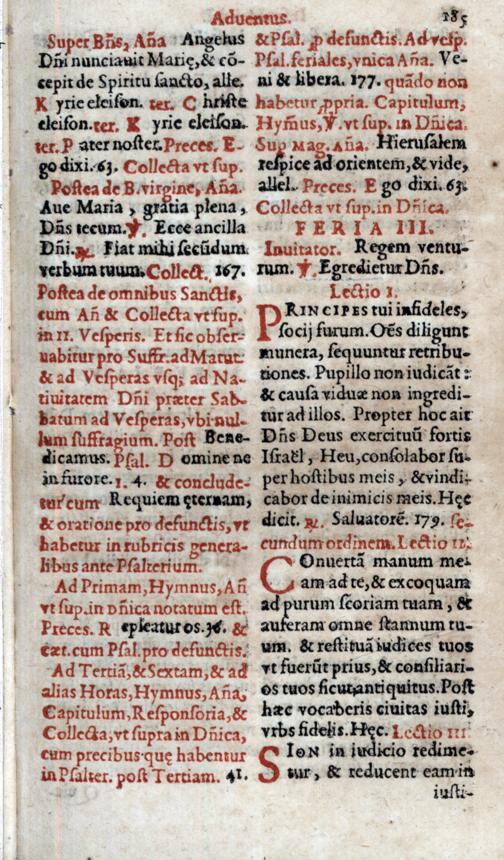 Aduentus.
185
Super Bñs, Aña Angelus
Dñi nunciauit Marię, & cō-
cepit de Spiritu sancto, alle.
K yrie eleison. ter. C hriste
eleison. ter. K yrie eleison.
ter. P ater noster. Preces. E-
go dixi. 63. Collecta vt sup.
Postea de B. virgine, Aña.
Aue Maria , gratia plena,
Dñs tecum. ℣. Ecce ancilla
Dñi. ℟. Fiat mihi secūdum
verbum tuum. Collect. 167.
Postea de omnibus Sanctis,
cum Añ & Collecta vt sup.
in II. Vesperis. Et sic obser-
uabitur pro Suffr. ad Matut.
& ad Vesperas vsq; ad Na-
tiuitatem Dñi præter Sab-
batum ad Vesperas, vbi nul-
lum suffragium. Post Bene-
dicamus. Psal. D omine ne
in furore. I. 4. & conclude-
tur cum Requiem ęternam,
& oratione pro defunctis, vt
habetur in rubricis genera-
libus ante Psalterium.
Ad Primam, Hymnus, Añ
vt sup. in Dñica notatum est.
Preces. R epleatur os. 36. &
cæt. cum Psal. pro defunctis.
Ad Tertiā, & Sextam, & ad
alias Horas, Hymnus, Aña,
Capitulum, Responsoria, &
Collecta, vt supra in Dñica,
cum precibus quę habentur
in Psalter. post Tertiam. 41.
& Psal. ꝓ defunctis. Ad vesp.
Psal. feriales, vnica Aña. Ve-
ni & libera. 177. quādo non
habetur ꝓpria. Capitulum,
Hym̄us, ℣. vt sup. in Dñica.
Sup Mag. Aña. Hierusalem
respice ad orientem, & vide,
allel. Preces. E go dixi. 63.
Collecta vt sup. in Dñica.
FERIA III.
Inuitator. Regem ventu-
rum. ℣. Egredietur Dñs.
Lectio I.
PRINCIPES tui infideles,
socij furum. Oēs diligunt
munera, sequuntur retribu-
tiones. Pupillo non iudicāt:
& causa viduæ non ingredi-
tur ad illos. Propter hoc ait
Dñs Deus exercituū fortis
Israël, Heu, consolabor su-
per hostibus meis, & vindi-
cabor de inimicis meis. Hęc
dicit. ℟. Saluatorē. 179. se-
cundum ordinem. Lectio II.
COnuertā manum me-
am ad te, & excoquam
ad purum scoriam tuam, &
auferam omne stannum tu-
um. & restituā iudices tuos
vt fuerūt prius, & consiliari-
os tuos sicut antiquitus. Post
hæc vocaberis ciuitas iusti,
vrbs fidelis. Hęc. Lectio III
SION in iudicio redime-
tur, & reducent eam in
iusti-